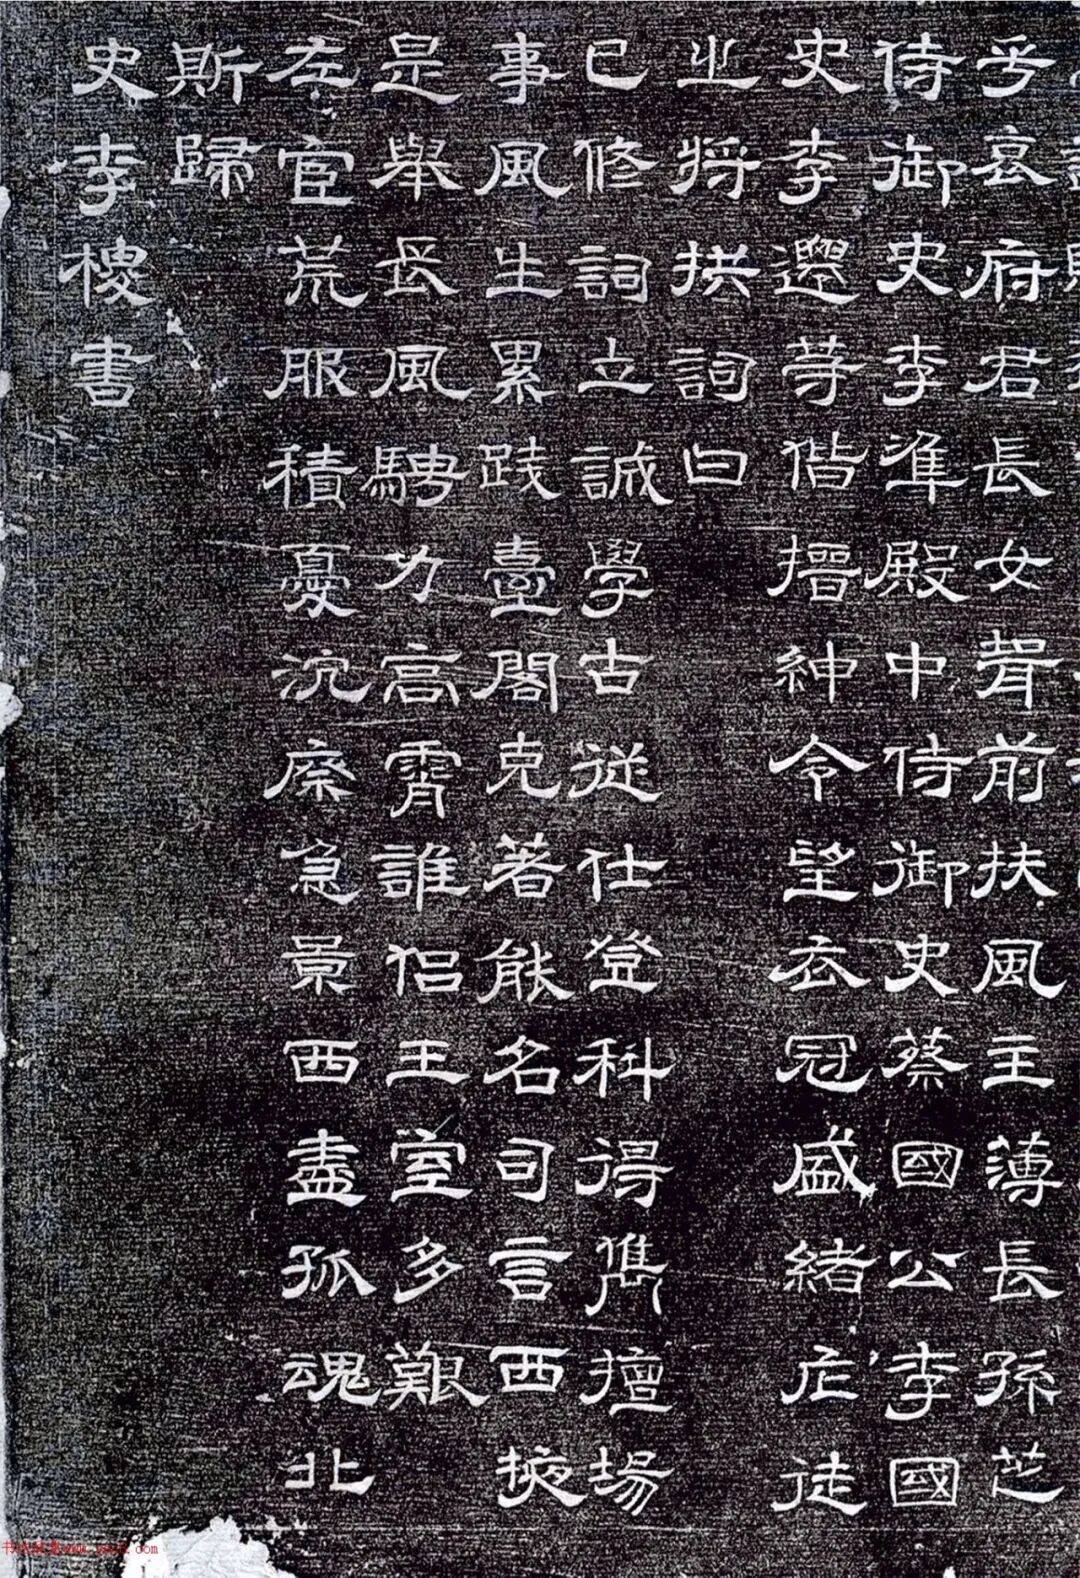 兮哀府君長女聟前扶風主薄長孫芷
侍御史李準殿中侍御史蔡國公李國
史李遷等偕搢紳令望衣冠盛緒庀徒
㞢將拱詞曰
已修詞立誠學古從仕登科得儁擅場
事風生累踐臺閣克著能名司言西掖
是舉長風騁力高霄誰侶王室多艱
左宦荒服積憂沉瘵急景西盡孤魂北
斯歸
史李㮨書